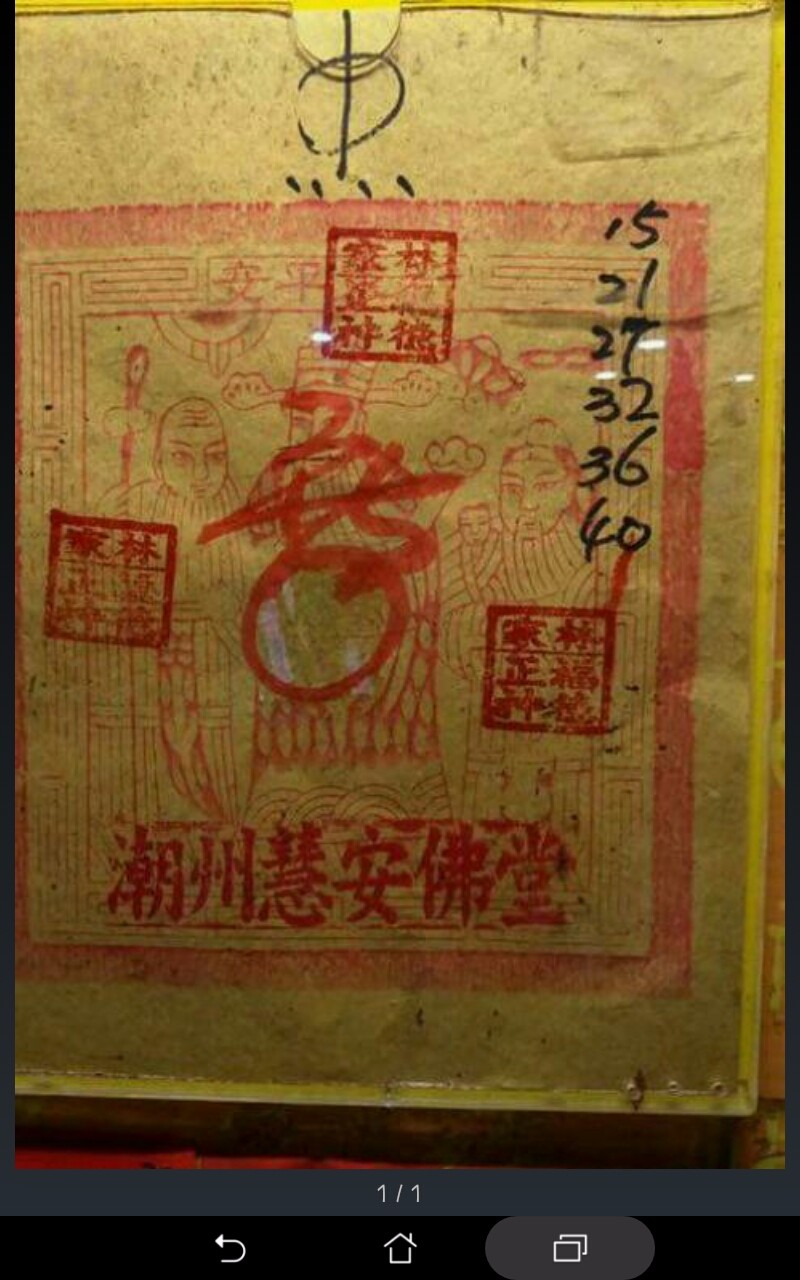 平安
林福德
家正神
15
21
27
32
36
40
林福德
家正神
林福德
家正神
潮州慧安佛堂
1 / 1